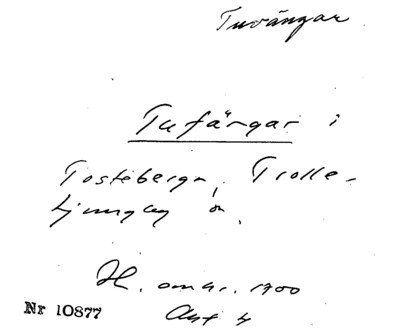 Tuvängar
Tufängar i
Tosteberga, Trolle-
ljungby
H. omkr. 1900
Nr 10877